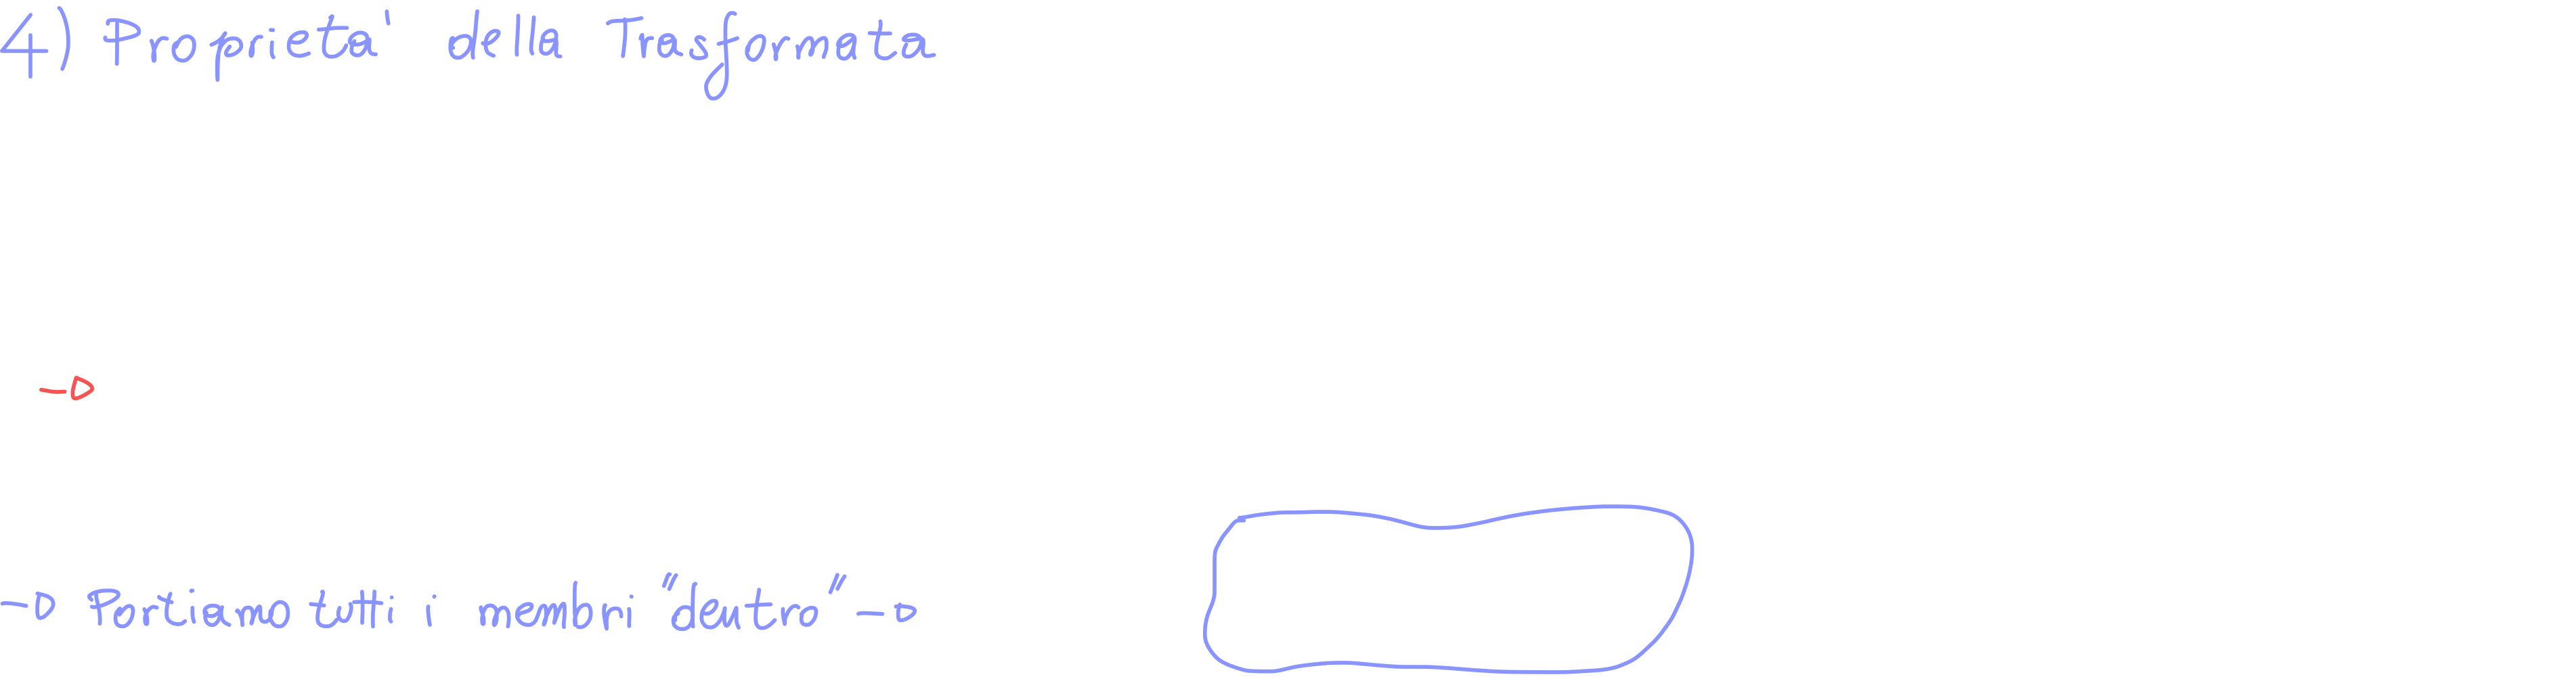 4) Proprieta' della Trasformata
→
→ Portiamo tutti i membri "dentro" →